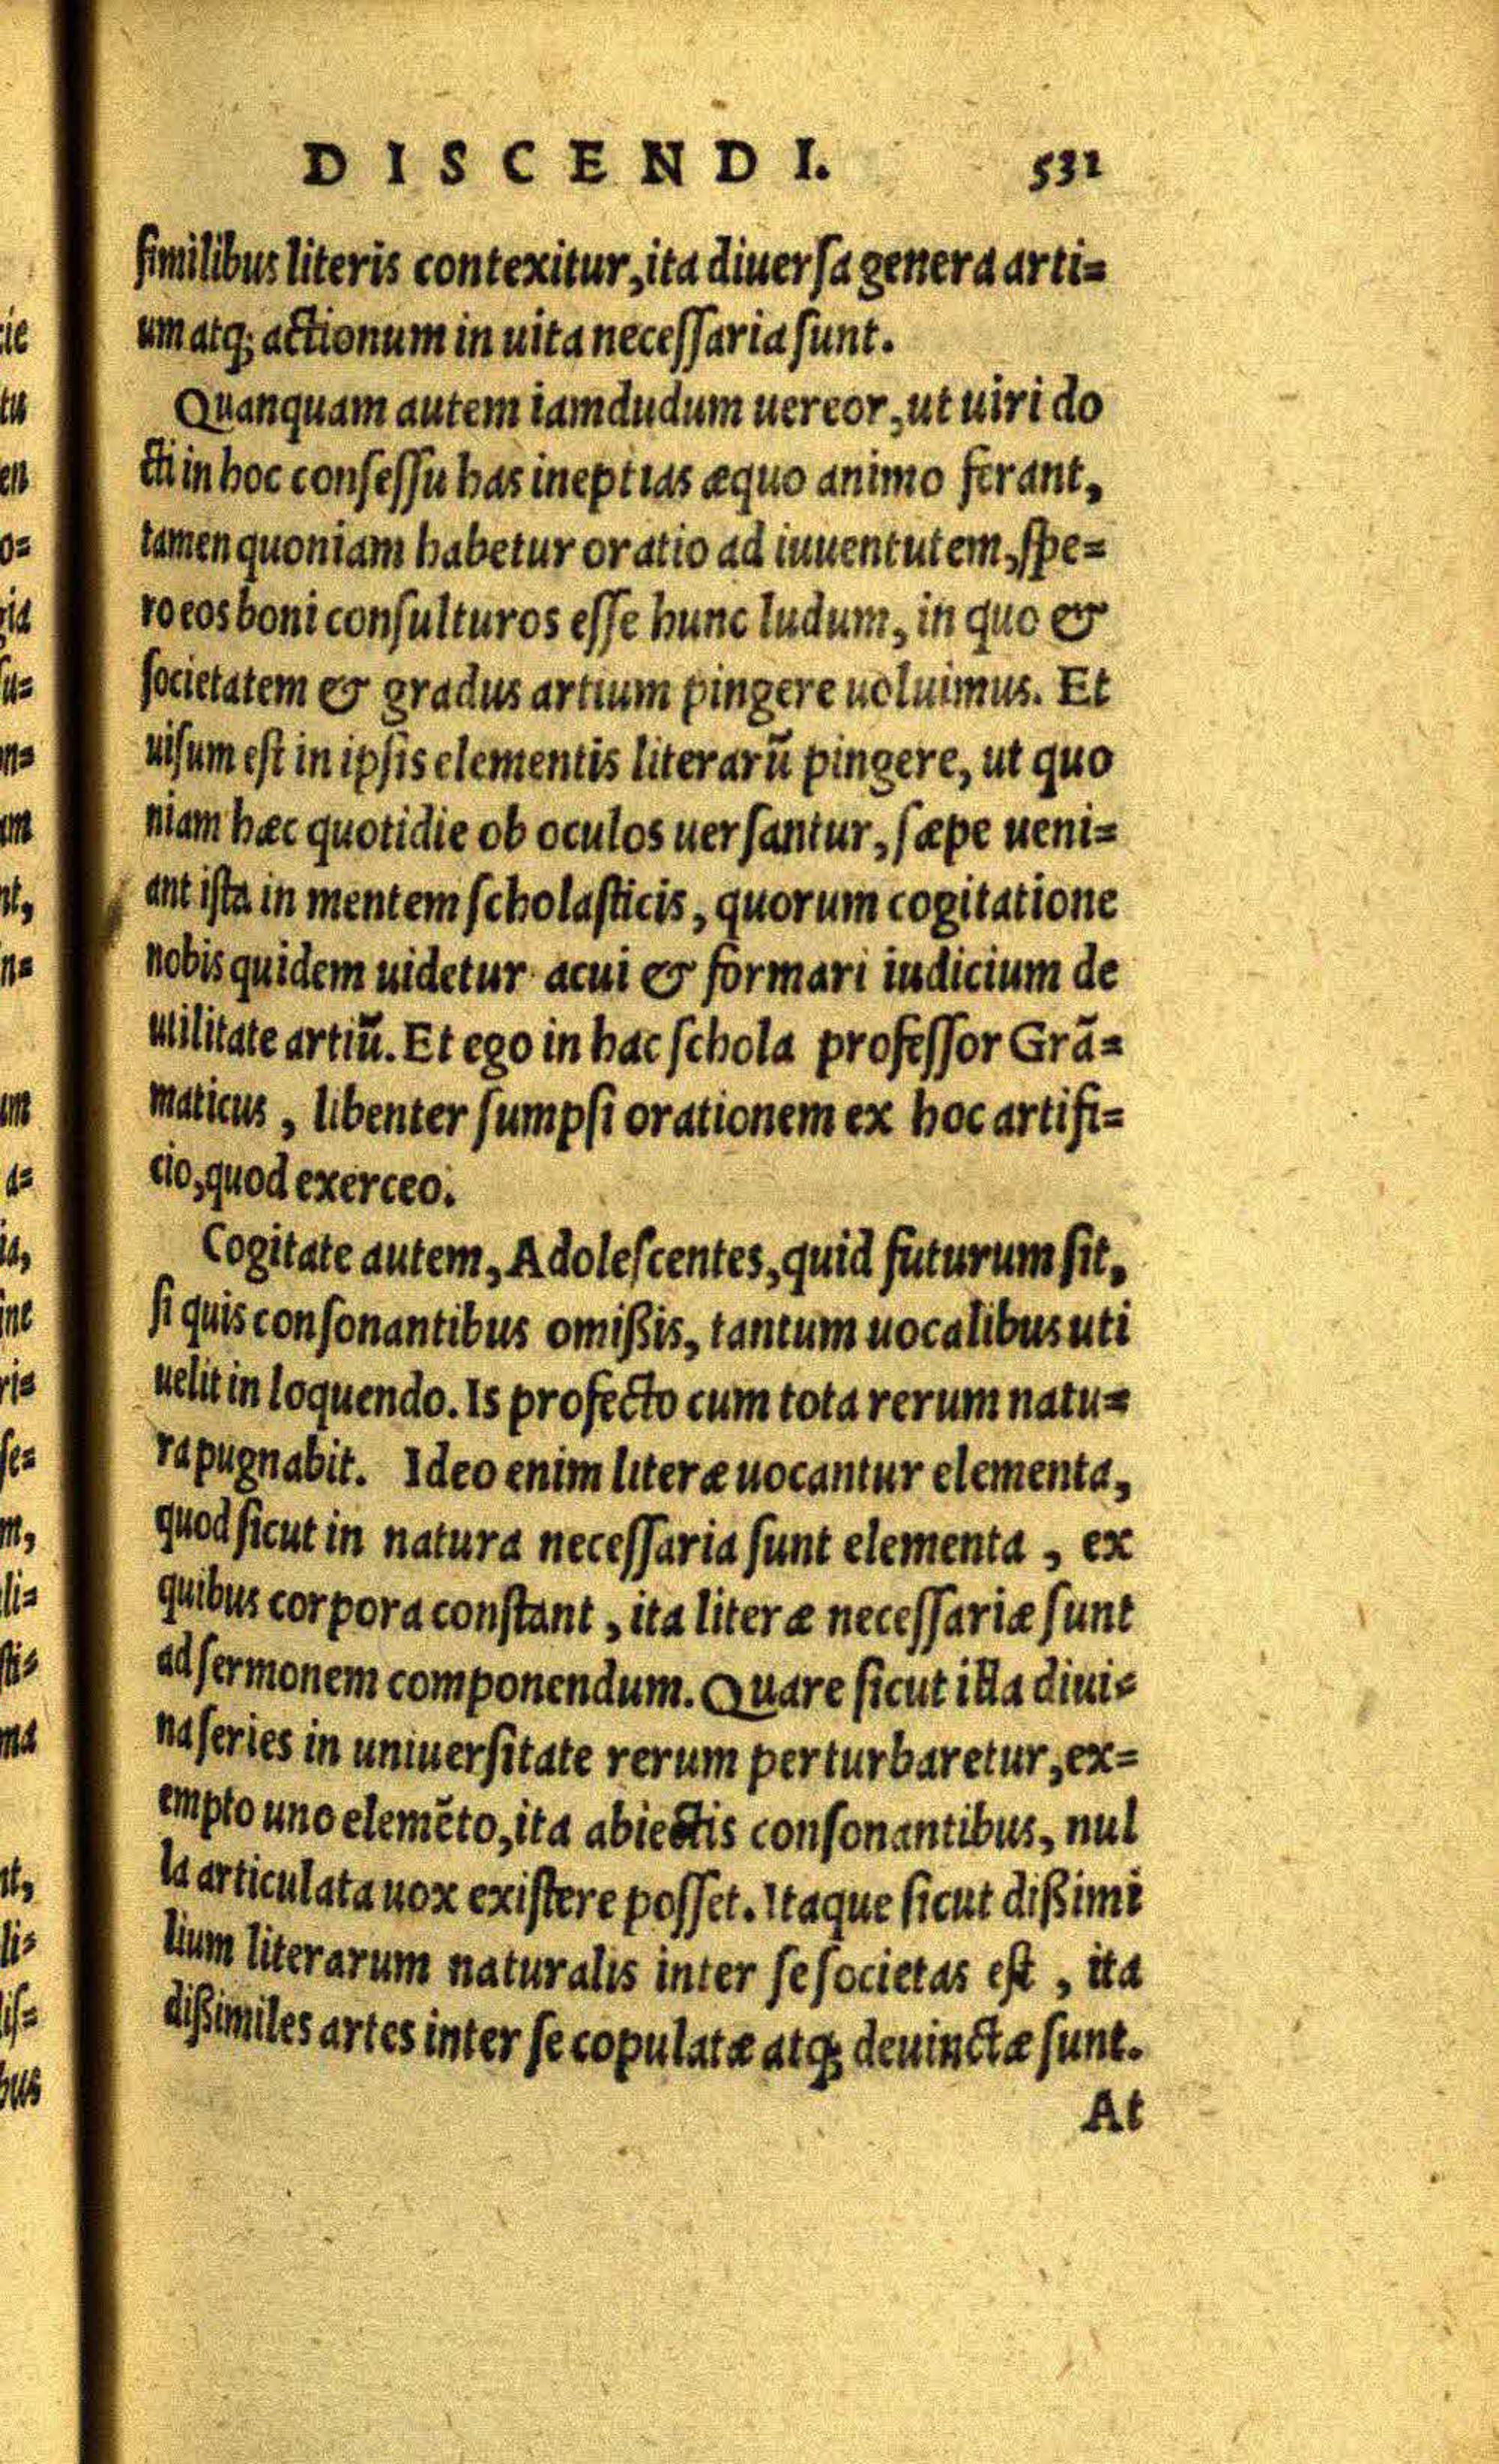 DISCENDI. 532
ſimilibus literis contexitur, ita diuerſa genera arti=
um atq; actionum in uita neceſſaria ſunt.
Quanquam autem iamdudum uereor, ut uiri do
cti in hoc conſeſſu has ineptias æquo animo ferant,
tamen quoniam habetur oratio ad iuuentutem, ſpe=
ro eos boni conſulturos eſſe hunc ludum, in quo &
ſocietatem & gradus artium pingere uoluimus. Et
uiſum eſt in ipſis elementis literarū pingere, ut quo
niam hæc quotidie ob oculos uerſantur, ſæpe ueni=
ant iſta in mentem ſcholaſticis, quorum cogitatione
nobis quidem uidetur acui & formari iudicium de
utilitate artiū. Et ego in hac ſchola profeſſor Grā=
maticus, libenter ſumpſi orationem ex hoc artifi=
cio, quod exerceo.
Cogitate autem, Adoleſcentes, quid futurum ſit,
ſi quis conſonantibus omißis, tantum uocalibus uti
uelit in loquendo. Is profecto cum tota rerum natu=
ra pugnabit. Ideo enim literæ uocantur elementa,
quod ſicut in natura neceſſaria ſunt elementa, ex
quibus corpora conſtant, ita literæ neceſſariæ ſunt
ad ſermonem componendum. Quare ſicut illa diui=
na ſeries in uniuerſitate rerum perturbaretur, ex=
empto uno elemēto, ita abiectis conſonantibus, nul
la articulata uox exiſtere poſſet. Itaque ſicut dißimi
lium literarum naturalis inter ſe ſocietas eſt, ita
dißimiles artes inter ſe copulatæ atq; deuinctæ ſunt.
At